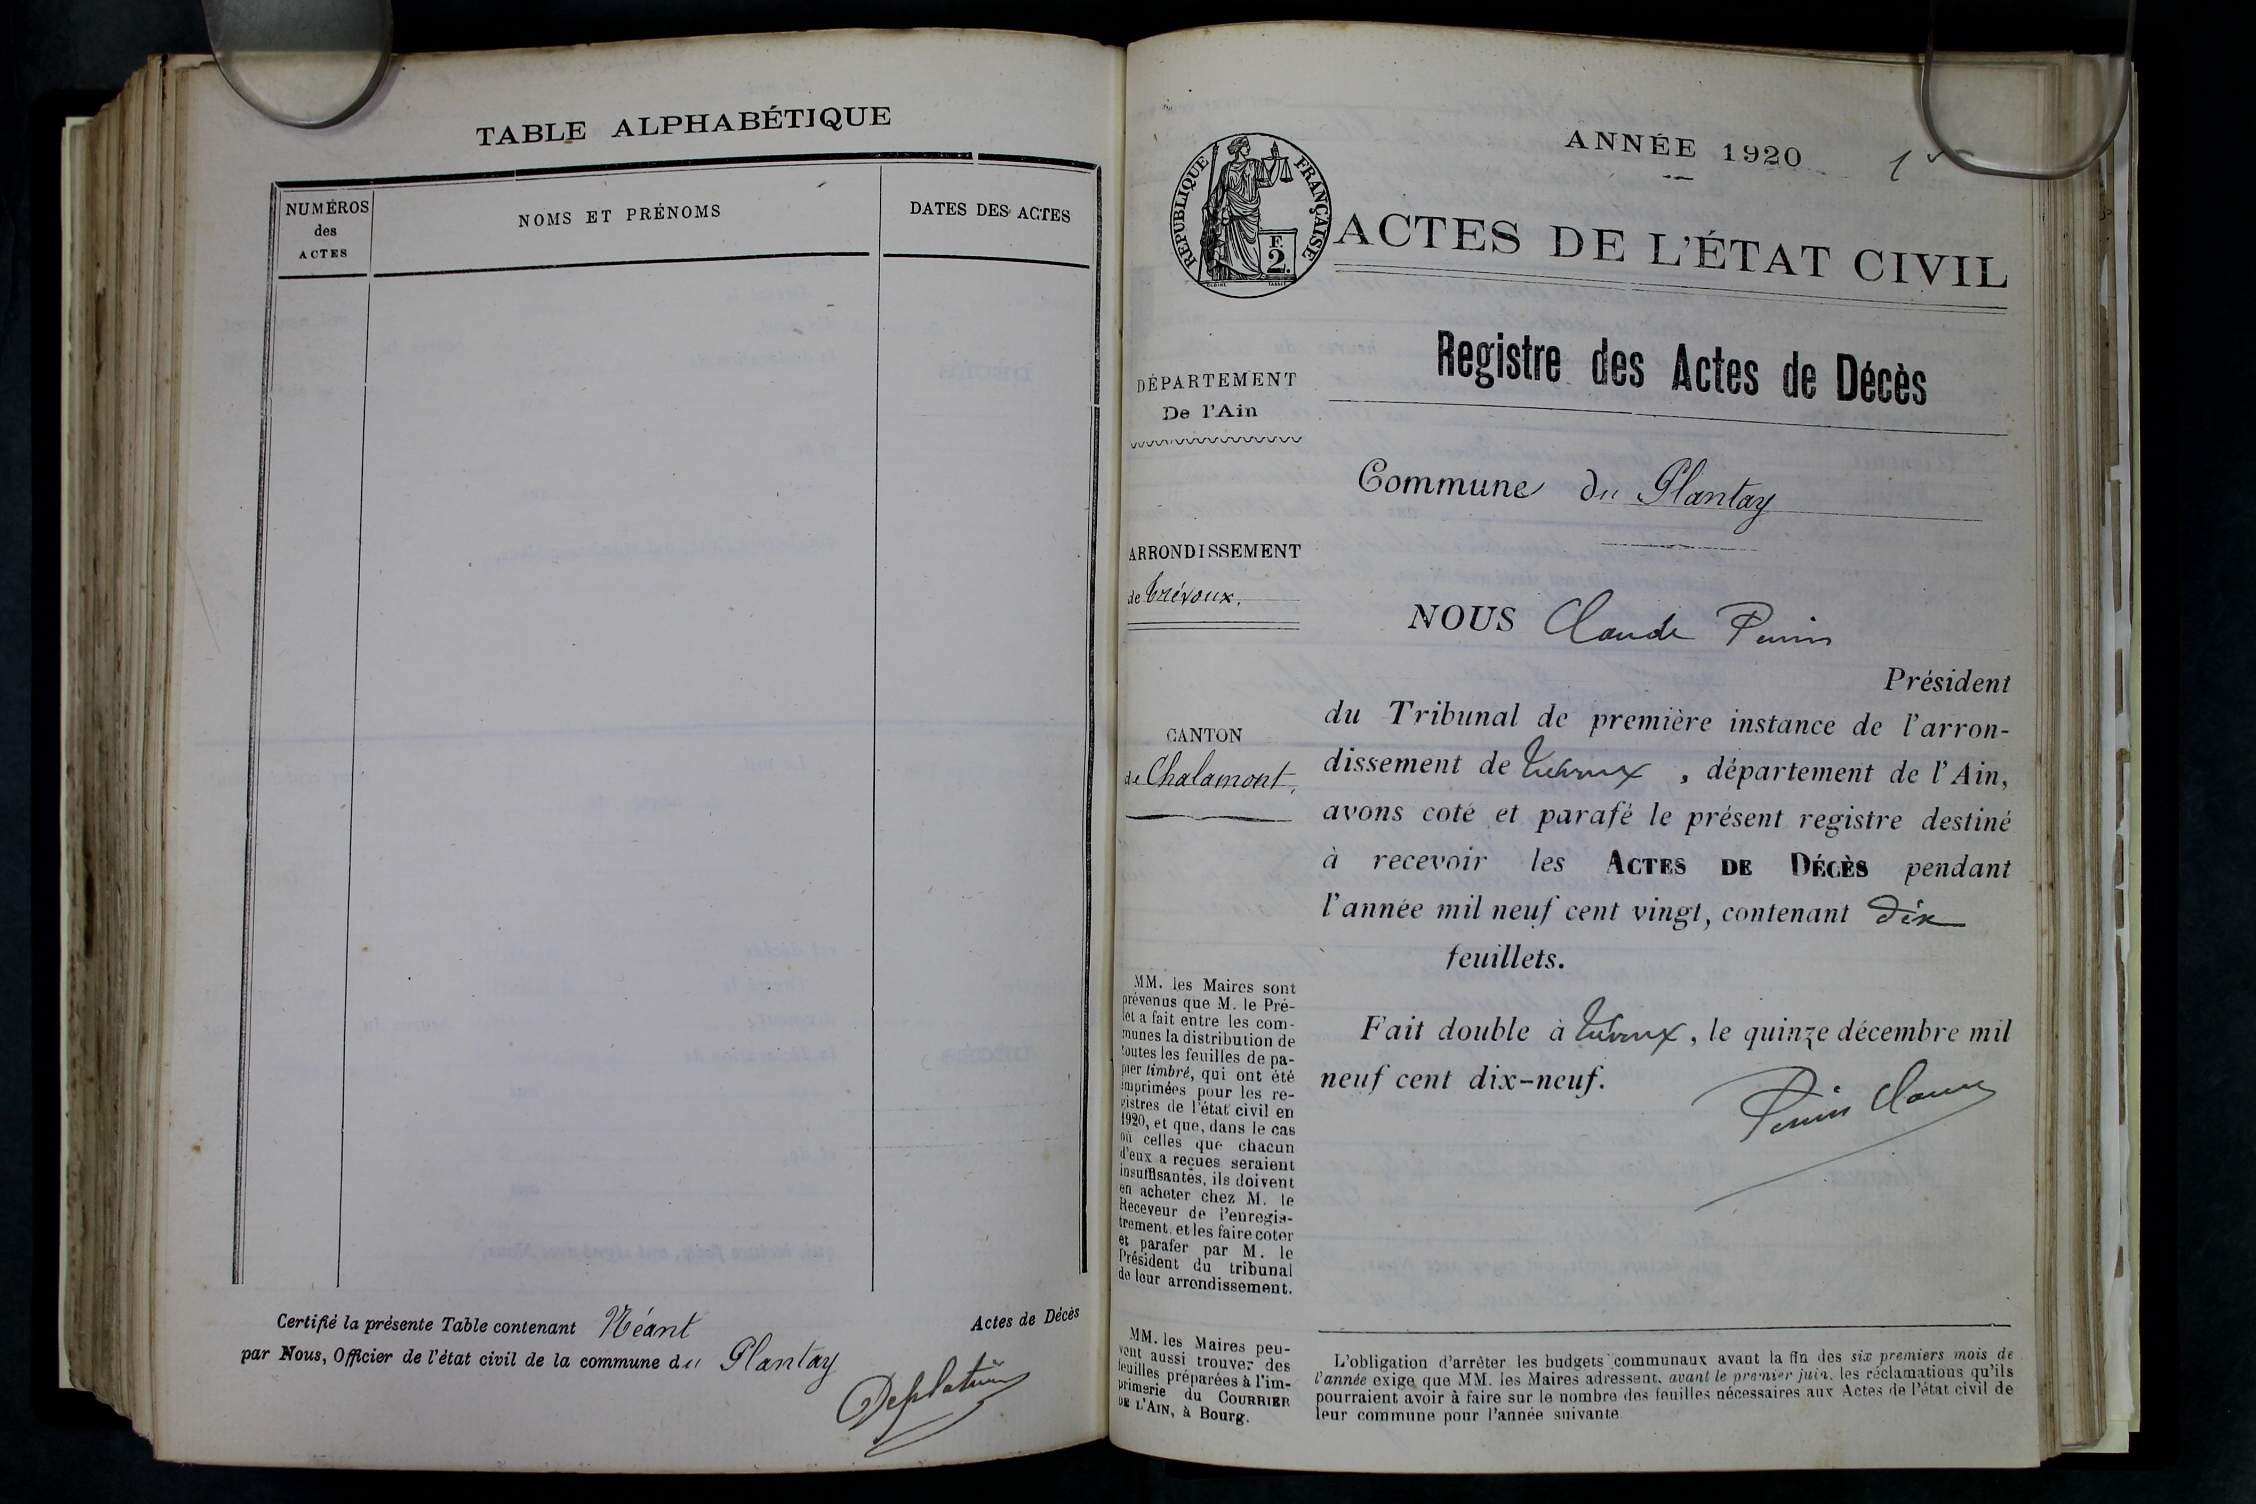 TABLE ALPHABÉTIQUE
NUMÉROS
des
ACTES
NOMS ET PRÉNOMS
DATES DES ACTES
Certifié la présente Table contenant Néant Actes de Décès
par Nous, Officier de l'état civil de la commune du Plantay
ANNÉE 1920
RÉPUBLIQUE FRANÇAISE
F.
2.
ACTES DE L'ÉTAT CIVIL
Registre des Actes de Décès
DÉPARTEMENT
De l'Ain
Commune du Plantay
ARRONDISSEMENT
de Trévoux.
CANTON
de Chalamont.
NOUS Claude Perrin
Président
du Tribunal de première instance de l'arron-
dissement de Trévoux, département de l'Ain,
avons coté et parafé le présent registre destiné
à recevoir les ACTES DE DÉCÈS pendant
l'année mil neuf cent vingt, contenant dix
feuillets.
Fait double à Trévoux, le quinze décembre mil
neuf cent dix-neuf.
Perrin Claude
MM. les Maires sont
prévenus que M. le Pré-
fet a fait entre les com-
munes la distribution de
toutes les feuilles de pa-
pier timbré, qui ont été
imprimées pour les re-
gistres de l'état civil en
1920, et que, dans le cas
où celles que chacun
d'eux a reçues seraient
insuffisantes, ils doivent
en acheter chez M. le
Receveur de l'enregis-
trement, et les faire coter
et parafer par M. le
Président du tribunal
de leur arrondissement.
MM. les Maires peu-
vent aussi trouver des
feuilles préparées à l'im-
primerie du COURRIER
DE L'AIN, à Bourg.
L'obligation d'arrêter les budgets communaux avant la fin des six premiers mois de
l'année exige que MM. les Maires adressent, avant le premier juin, les réclamations qu'ils
pourraient avoir à faire sur le nombre des feuilles nécessaires aux Actes de l'état civil de
leur commune pour l'année suivante